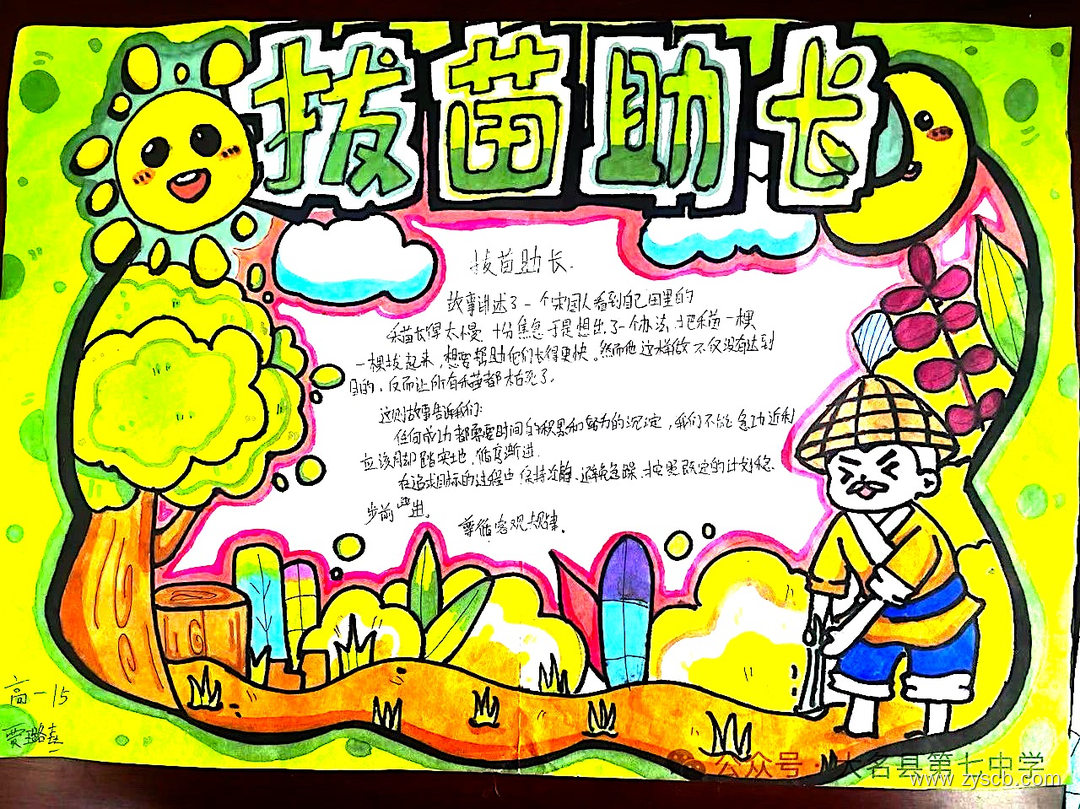 拔苗助长
拔苗助长.
故事讲述了一个宋国人看到自己田里的
禾苗长得太慢,十分焦急于是想出了一个办法,把禾苗一棵
一棵拔起来,想要帮助他们长得更快。然而他这样做不仅没有达到
目的,反而让所有禾苗都枯死了。
这则故事告诉我们:
任何成功都需要时间的积累和努力的沉淀,我们不能急功近利
应该脚踏实地,循序渐进.
在追求目标的过程中保持冷静,避免急躁.按照既定的计划稳
步前进。
尊循客观规律。
高一15
公众号·大名县第七中学
www.zyscb.com